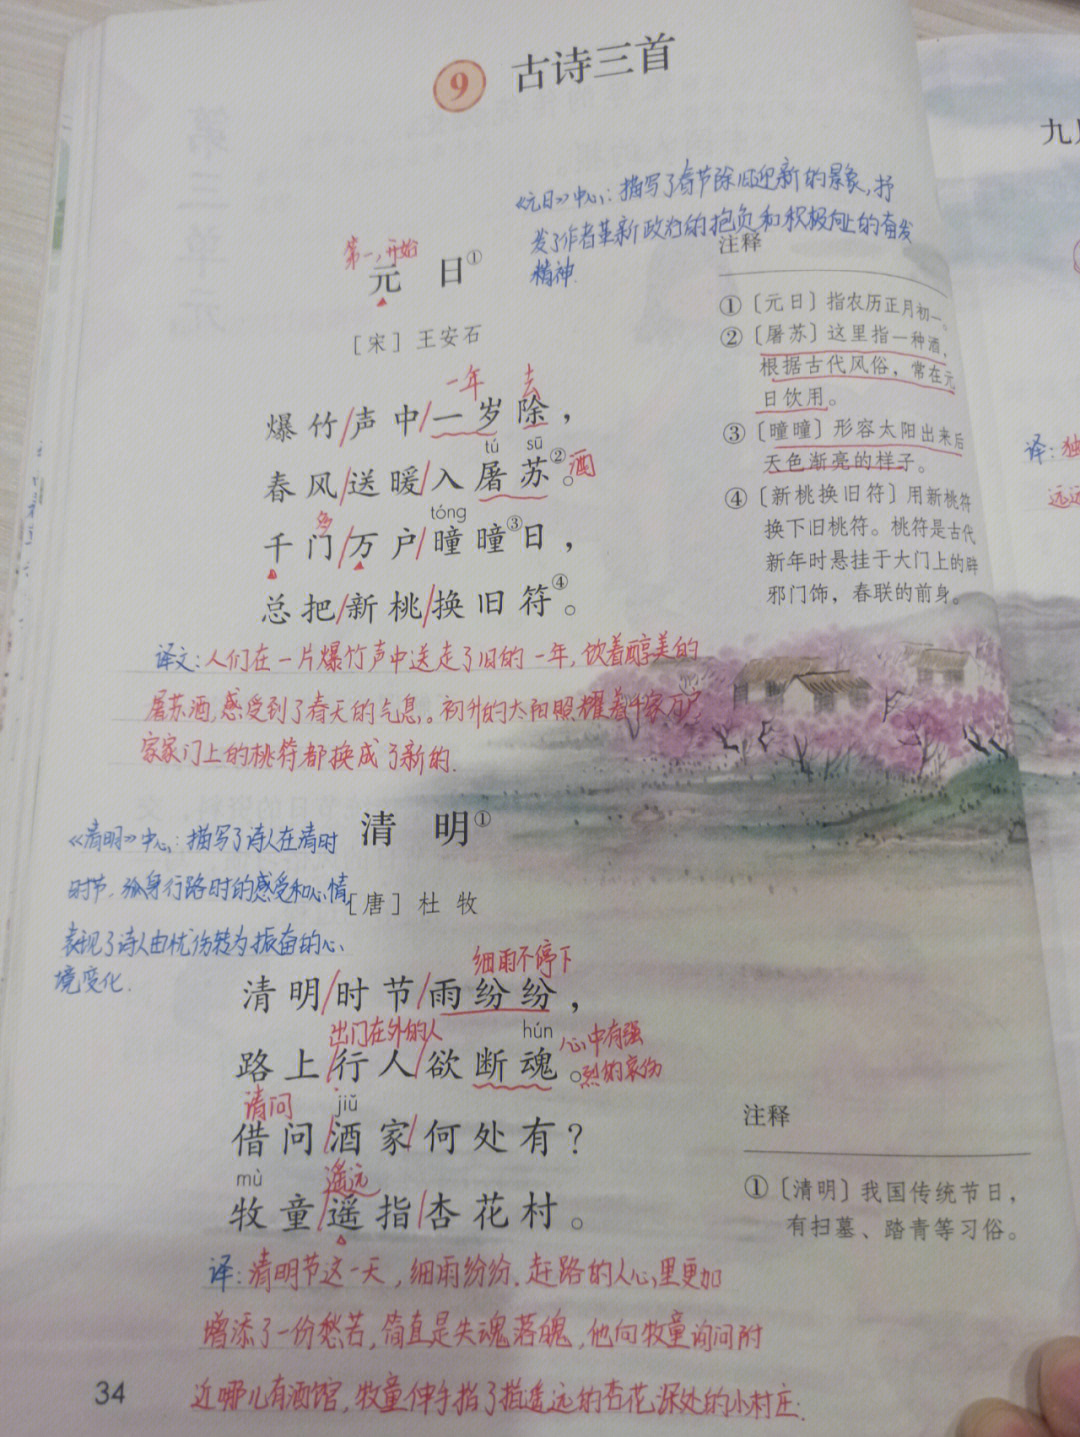 9 古诗三首
《元日》中心:描写了春节除旧迎新的景象,抒
发了作者革新政治的抱负和积极向上的奋发
精神.
第一,开始
元 日①
[宋] 王安石
一年 去
爆竹/声中/一岁除,
tú sū
春风/送暖/入屠苏②。酒
多 tóng
千门/万户/曈曈③日,
总把/新桃/换旧符④。
注释
①〔元日〕指农历正月初一。
②〔屠苏〕这里指一种酒,
根据古代风俗,常在元
日饮用。
③〔曈曈〕形容太阳出来后
天色渐亮的样子。
④〔新桃换旧符〕用新桃符
换下旧桃符。桃符是古代
新年时悬挂于大门上的辟
邪门饰,春联的前身。
译文:人们在一片爆竹声中送走了旧的一年,饮着醇美的
屠苏酒,感受到了春天的气息。初升的太阳照耀着千家万户
家家门上的桃符都换成了新的.
《清明》中心:描写了诗人在清时
时节,孤身行路时的感受和心情,
表现了诗人由忧伤转为振奋的心
境变化.
清 明①
[唐] 杜 牧
细雨不停下
清明/时节/雨纷纷,
出门在外的人 hún 心中有强
烈的哀伤
路上/行人/欲断魂。
请问 jiǔ
借问/酒家/何处有?
mù 遥远
牧童/遥指/杏花村。
注释
①〔清明〕我国传统节日,
有扫墓、踏青等习俗。
译:清明节这一天,细雨纷纷.赶路的人心里更加
增添了一份愁苦,简直是失魂落魄,他向牧童询问附
近哪儿有酒馆,牧童伸手指了指遥远的杏花深处的小村庄.
34
九月
译:独
远远